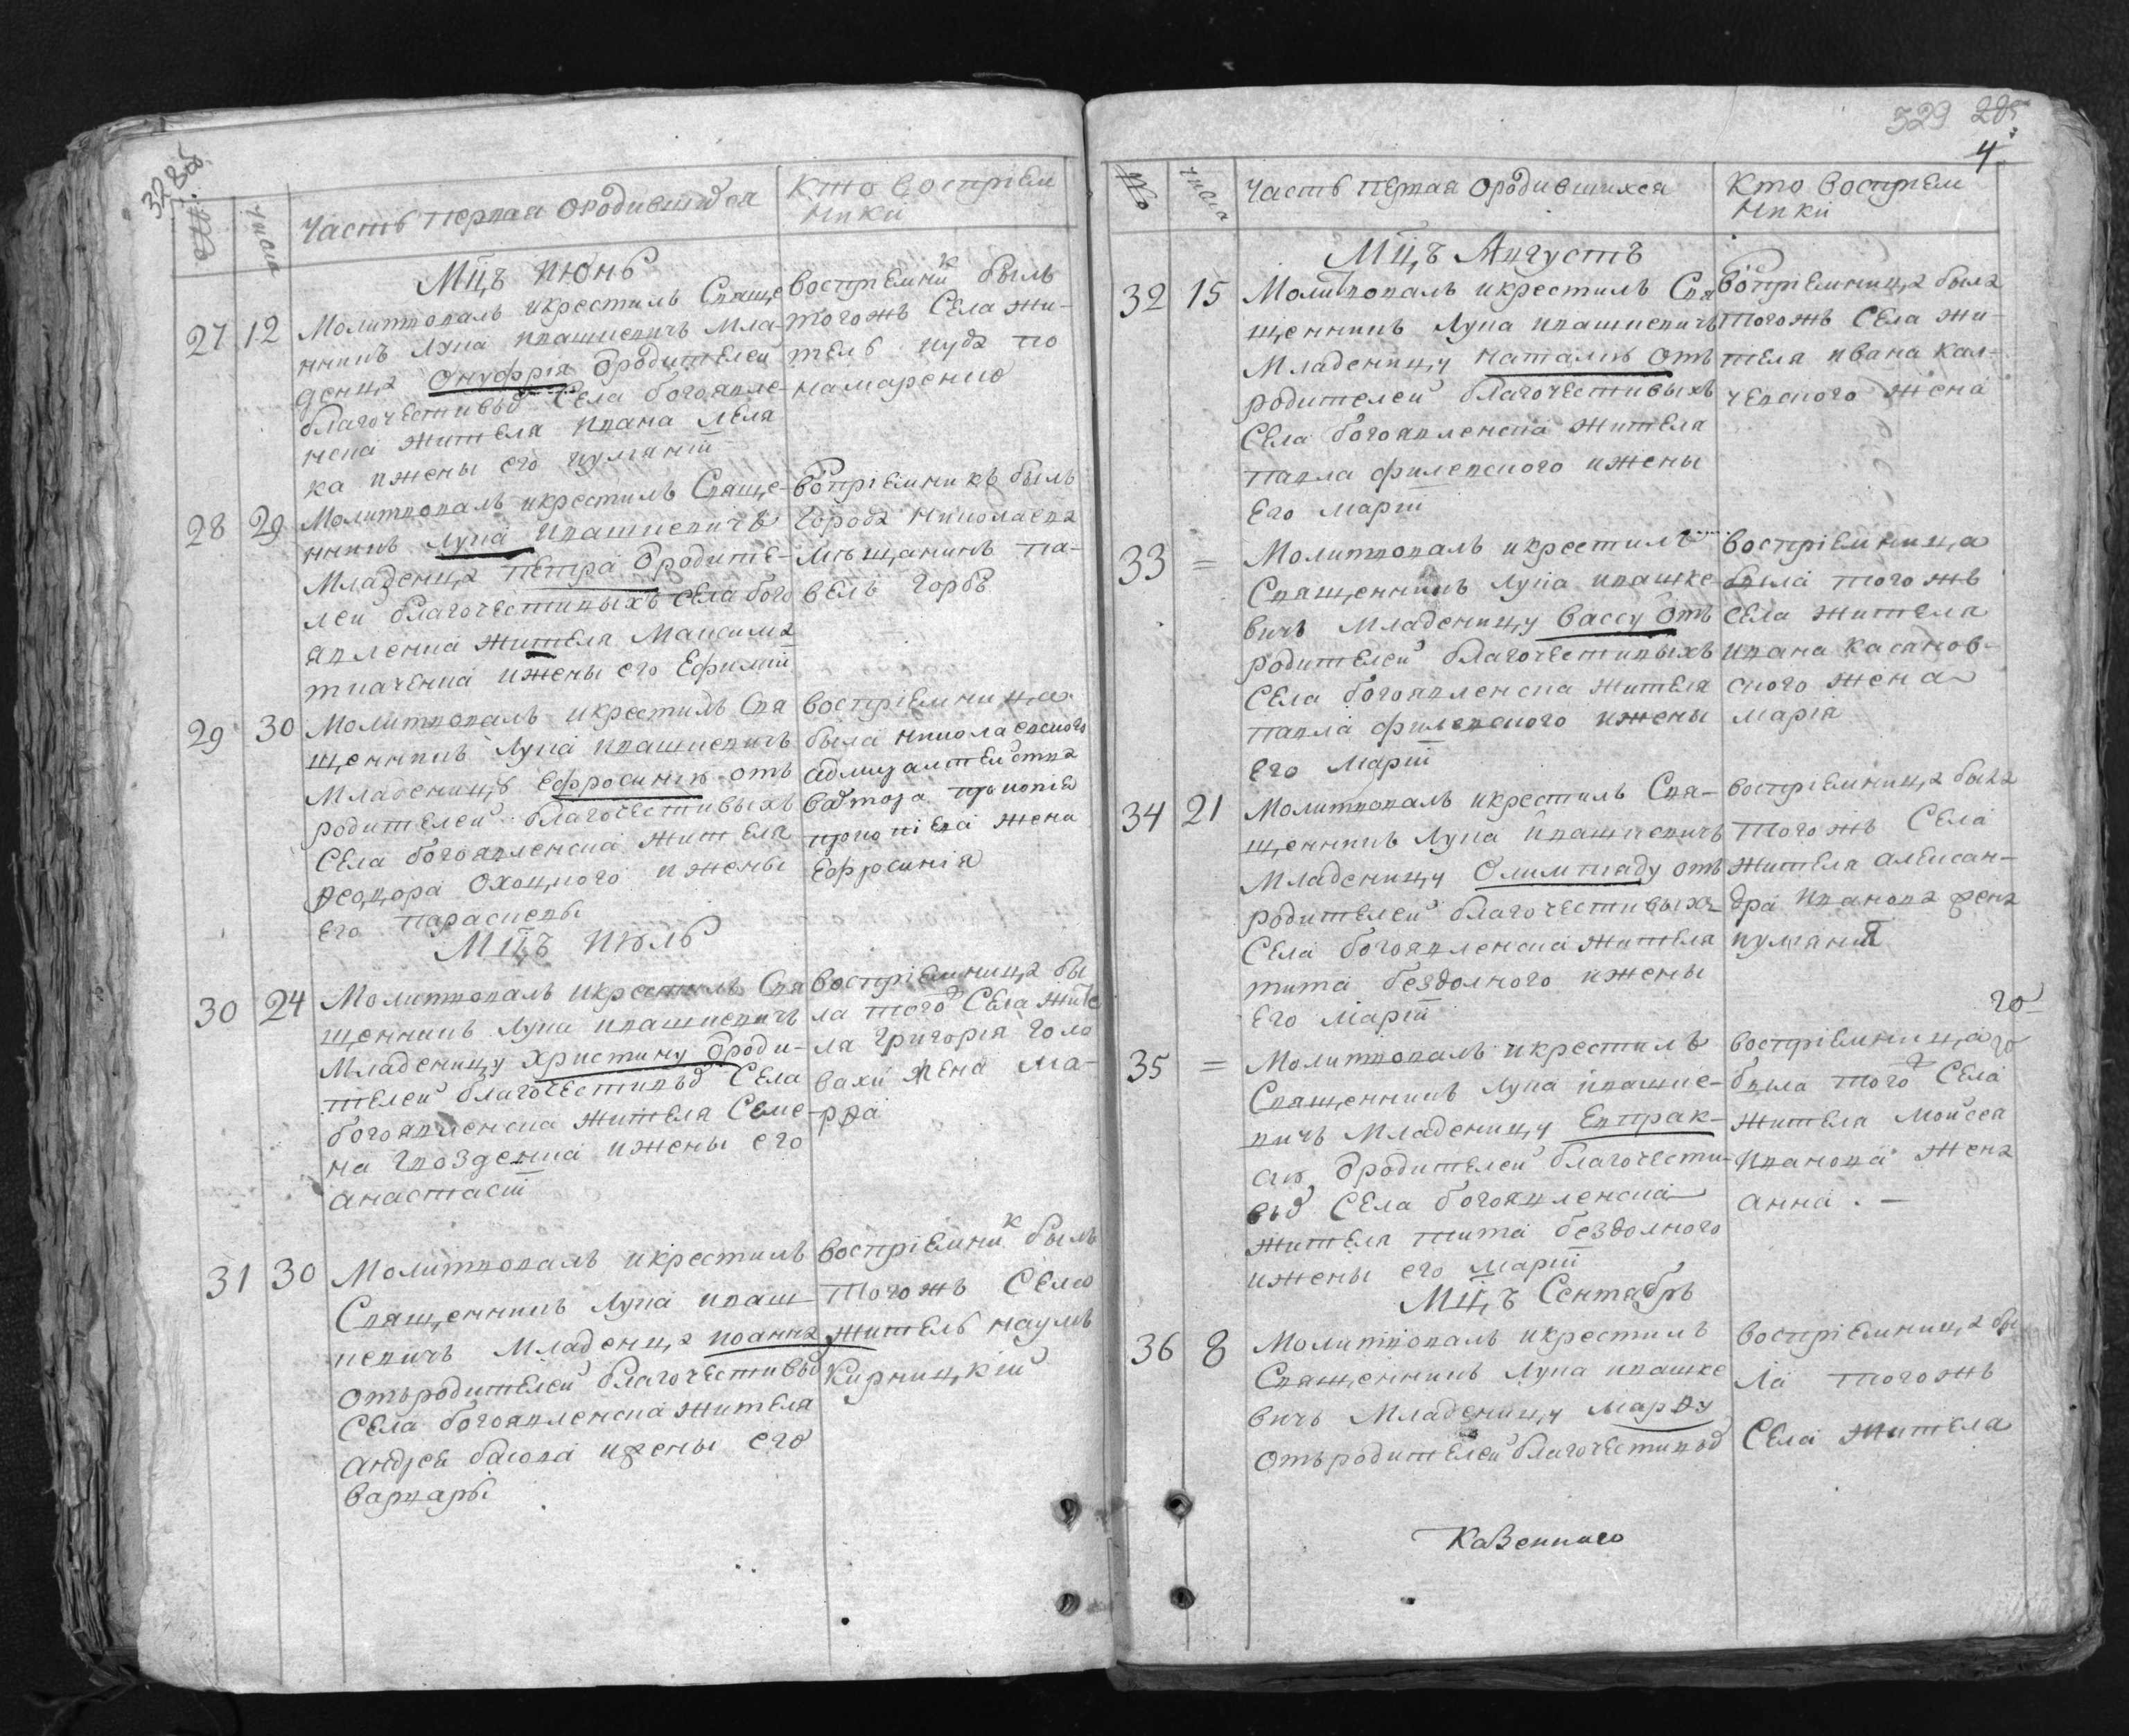 328об.
№ числа Часть первая ородившихся Кто восприем
ники
Мцъ июнь
27 12 Молитвовалъ икрестилъ Свяще
нникъ Лука ивашкевичъ мла-
денца Онуфрія ѿродителей
благочестивыхъ Села богоявле-
нска жителя ивана леля
ка ижены его иулианіи
воспріемникъ былъ
тогожъ Села жи-
тель иуда по
намаренко
28 29 Молитвовалъ икрестилъ Свяще-
нникъ Лука ивашкевичъ
Младенца петра ѿродите-
лей благочестивыхъ села бого
явленска жителя Максима
ткаченка ижены его Ефиміи
воспріемникъ былъ
города николаева
мѣщанинъ па-
велъ горбъ
29 30 Молитвовалъ икрестилъ Свя
щенникъ Лука ивашкевичъ
Младеницѣ Ефросинію отъ
родителей благочестивыхъ
Села богоявленска жителя
Ѳеодора Охоцкого ижены
его парасковы
воспріемница
была николаевского
адмиралтейства
прокопіева жена
Ефросинія
Мцъ июль
30 24 Молитвовалъ икрестилъ Свя
щенникъ Лука ивашкевичъ
Младеницу христину ѿроди-
телей благочестивыхъ Села
богоявленска жителя Семе-
на гвозденка ижены его
анастасіи
воспріемница бы
ла того Села жите
ля григорія голо
вахи жена ма-
рѳа
31 30 Молитвовалъ икрестилъ
Священникъ Лука иваш-
кевичъ Младенца иоанна
отъродителей благочестивыхъ
Села богоявленска жителя
андрея басова ижены его
варвары
воспріемникъ былъ
тогожъ Села
житель наумъ
Кирницкій
329
4
№ числа Часть первая ородившихся Кто воспріем
ники
Мцъ Августъ
32 15 Молитвовалъ икрестилъ Свя
щенникъ Лука ивашкевичъ
Младеницу наталію отъ
родителей благочестивыхъ
Села богоявленска жителя
павла филевского ижены
Его маріи
воспріемница была
тогожъ Села жи-
теля ивана кал-
чевского жена
33 = Молитвовалъ икрестилъ
Священникъ Лука ивашке
вичъ Младеницу вассу отъ
родителей благочестивыхъ
Села богоявленска жителя
павла филевского ижены
его маріи
воспріемница
была того жъ
села жителя
ивана касанов-
ского жена
марія
34 21 Молитвовалъ икрестилъ Свя-
щенникъ Лука ивашкевичъ
Младеницу Олимпіаду отъ
родителей благочестивыхъ
Села богоявленска жителя
тита бездолного ижены
Его маріи
воспріемница была
того жъ Села
жителя алексан-
дра иванова жена
иулианія
35 = Молитвовалъ икрестилъ
Священникъ Лука ивашке-
вичъ Младеницу Евпрак-
сію ѿродителей благочести-
выхъ Села богоявленска
жителя тита бездолного
ижены его маріи
воспріемница
была того Села
жителя мойсея
иванова жена
анна. —
Мцъ Сентябрь
36 8 Молитвовалъ икрестилъ
Священникъ Лука ивашке
вичъ Младеницу марѳу
отъродителей благочестивыхъ
воспріемница бы
ла тогожъ
Села жителя
Казенного